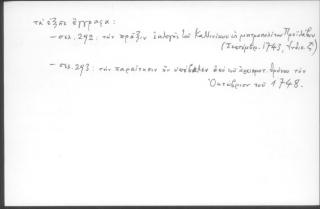 τὰ ἑξῆς ἔγγραφα:
— σελ. 292: τὴν πρᾶξιν ἐκλογῆς τοῦ Καλλινίκου ὡς μητροπολίτου Προϊλάβου
(Σεπτέμβρ. 1743, Ἰνδικ. ζ)
— σελ. 293: τὴν παραίτησιν ἣν ὑπέβαλεν ἀπὸ τοῦ θρόνου τὸν
Ὀκτώβριον τοῦ 1748.